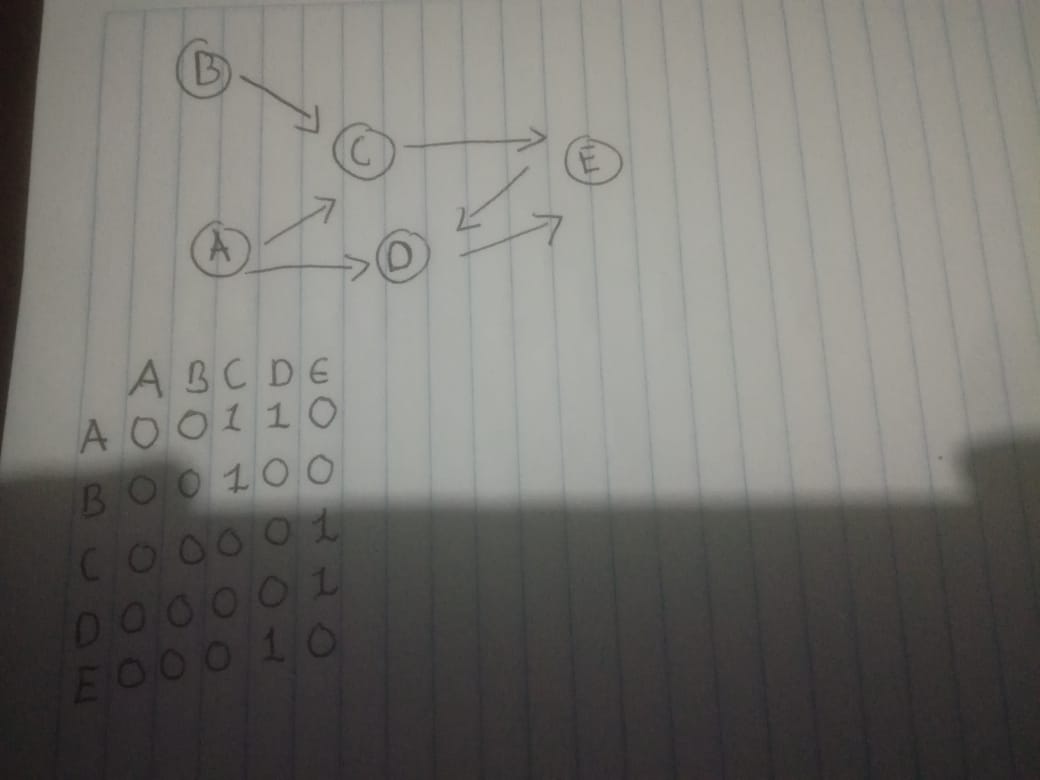 B
C
E
A
D
A B C D E
A 0 0 1 1 0
B 0 0 1 0 0
C 0 0 0 0 1
D 0 0 0 0 1
E 0 0 0 1 0